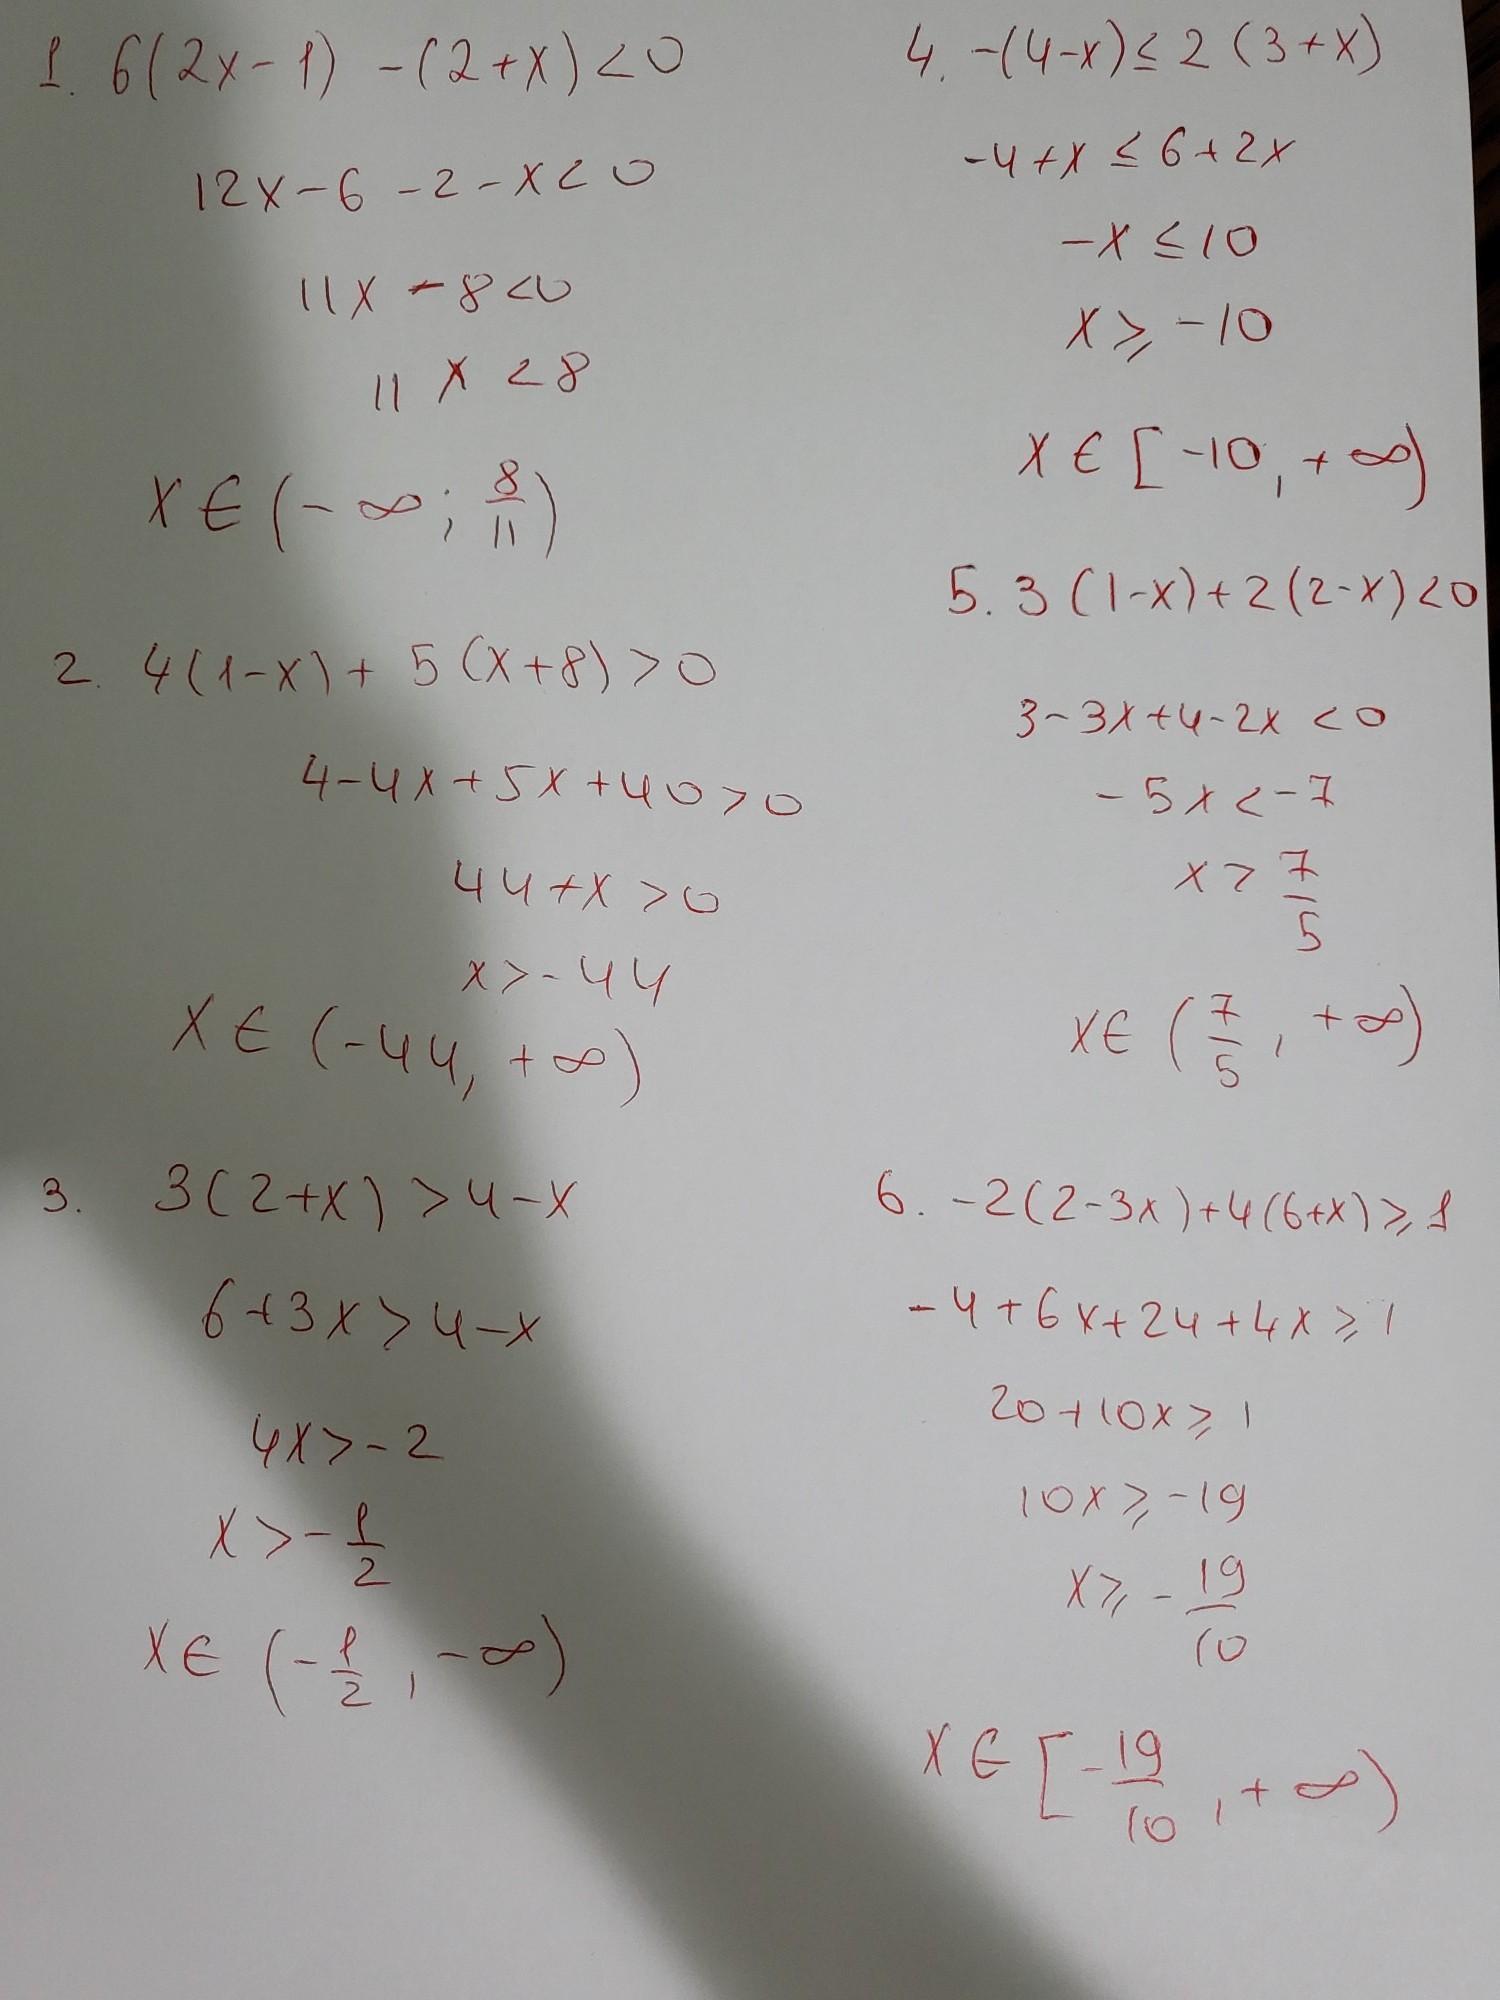 1. 6(2x-1) -(2+x)<0
12x-6-2-x<0
11x-8<0
11x<8
x∈(-∞; 8/11)
2. 4(1-x)+5(x+8)>0
4-4x+5x+40>0
44+x>0
x>-44
x∈(-44, +∞)
3. 3(2+x)>4-x
6+3x>4-x
4x>-2
x>-1/2
x∈(-1/2, -∞)
4. -(4-x)≤2(3+x)
-4+x≤6+2x
-x≤10
x⩾-10
x∈[-10, +∞)
5. 3(1-x)+2(2-x)<0
3-3x+4-2x<0
-5x<-7
x>7/5
x∈(7/5, +∞)
6. -2(2-3x)+4(6+x)⩾1
-4+6x+24+4x⩾1
20+10x⩾1
10x⩾-19
x⩾-19/10
x∈[-19/10, +∞)